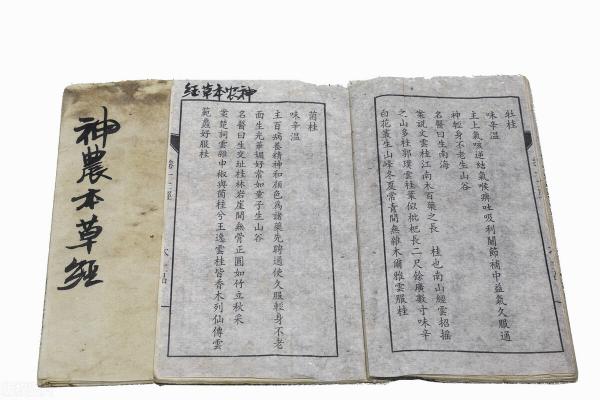 神農本草經
神农本草经
牡桂
味辛溫
主上氣咳逆結氣喉痹吐吸利關節補中益氣久服通
神輕身不老生山谷
名醫曰生南海
案說文雲桂江南木百藥之長 桂也南山經雲招搖
之山多桂郭璞雲桂葉似枇杷長二尺餘廣數寸味辛
白花叢生山峰冬夏常青間無雜木爾雅雲服桂
菌桂
味辛溫
主百病養精神和顏色為諸藥先聘通使久服輕身不老
面生光華媚好常如童子生山谷
名醫曰生交址桂林岩崖間無骨正圓如竹立秋采
案楚詞雲雜申椒與菌桂兮王逸雲桂皆香木列仙傳雲
範蠡好服桂